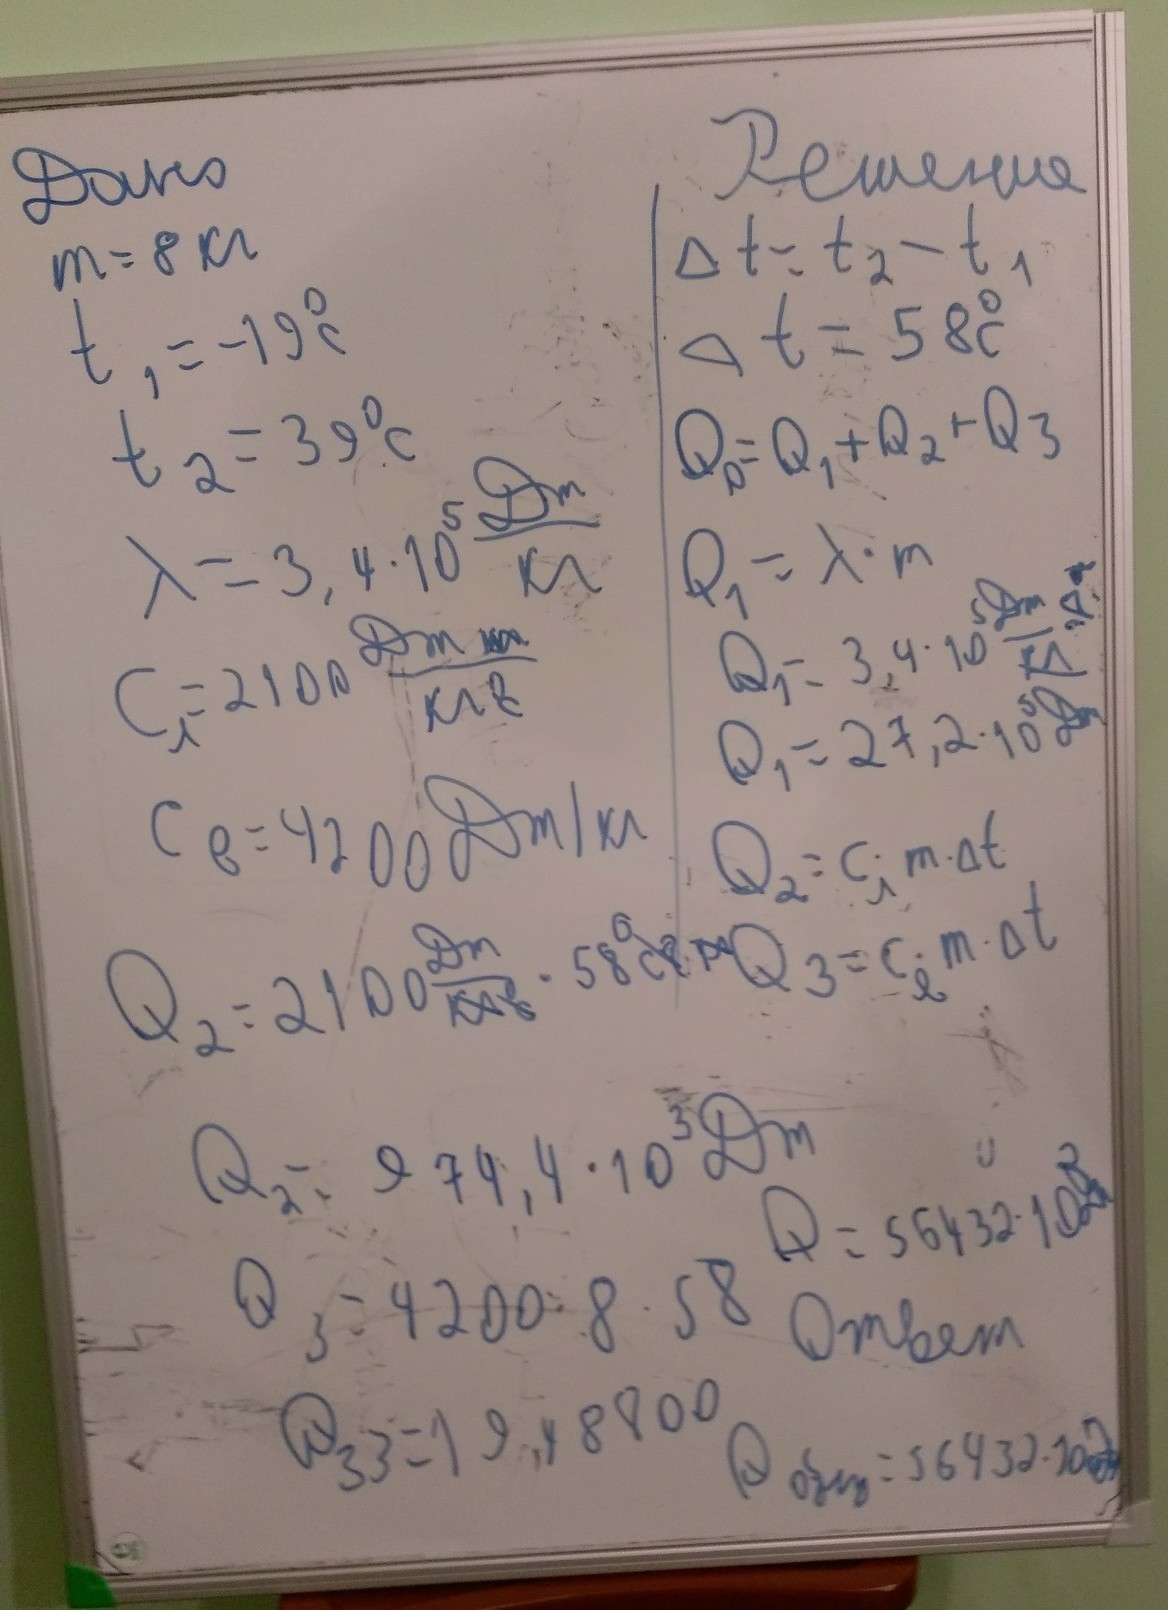 Дано
m = 8 кг
t₁ = -19°c
t₂ = 39°c
λ = 3,4·10⁵ Дж/кг
Cл = 2100 Дж/кг°
Cв = 4200 Дж/кг
Решение
Δt = t₂ - t₁
Δt = 58°c
Q₀ = Q₁ + Q₂ + Q₃
Q₁ = λ·m
Q₁ = 3,4·10⁵ Дж/кг
Q₁ = 27,2·10⁵ Дж
Q₂ = Cл m·Δt
Q₃ = Cв m·Δt
Q₂ = 2100 Дж/кг° · 58°c 8 кг
Q₂ = 974,4·10³ Дж
Q₃ = 4200·8·58
Q₃₃ = 19,48800
Q = 56432·10²
Ответ
Q общ = 56432·10²